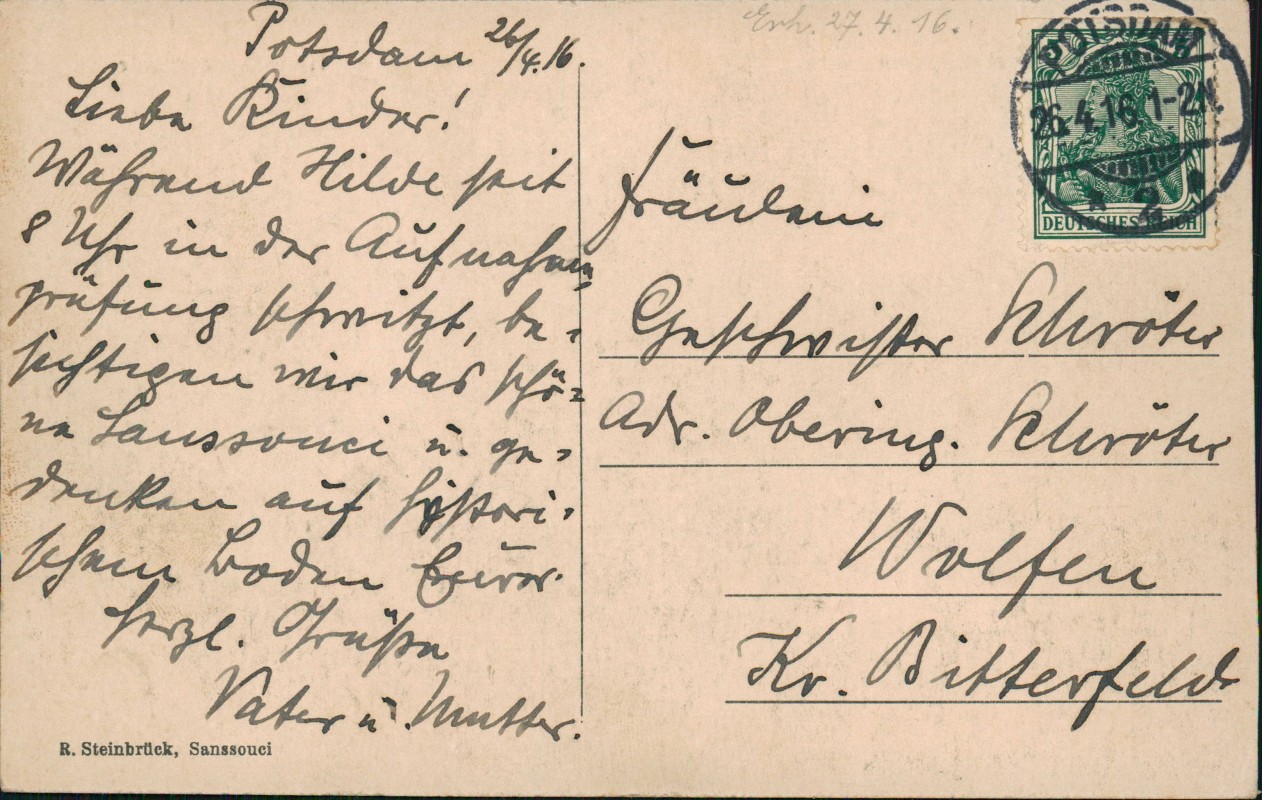 Potsdam 26/4.16.
Liebe Kinder!
Während Hilde seit
8 Uhr in der Aufnahme-
prüfung schwitzt, be-
sichtigen wir das schö-
ne Sanssouci u. ge-
denken auf histori-
schem Boden Eurer.
Herzl. Grüße
Vater u. Mutter.
R. Steinbrück, Sanssouci
Erh. 27.4.16.
POTSDAM
26.4.16.1-2N.
DEUTSCHES REICH
Fräulein
Geschwister Schröter
Adr. Obering. Schröter
Wolfen
Kr. Bitterfeld